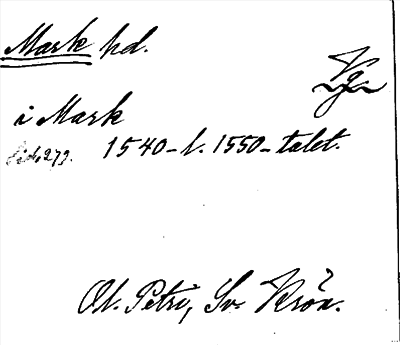 Mark hd.
Vg.
i Mark
sid. 279. 1540-l. 1550-talet.
Ol. Petri, Sv. Krön.